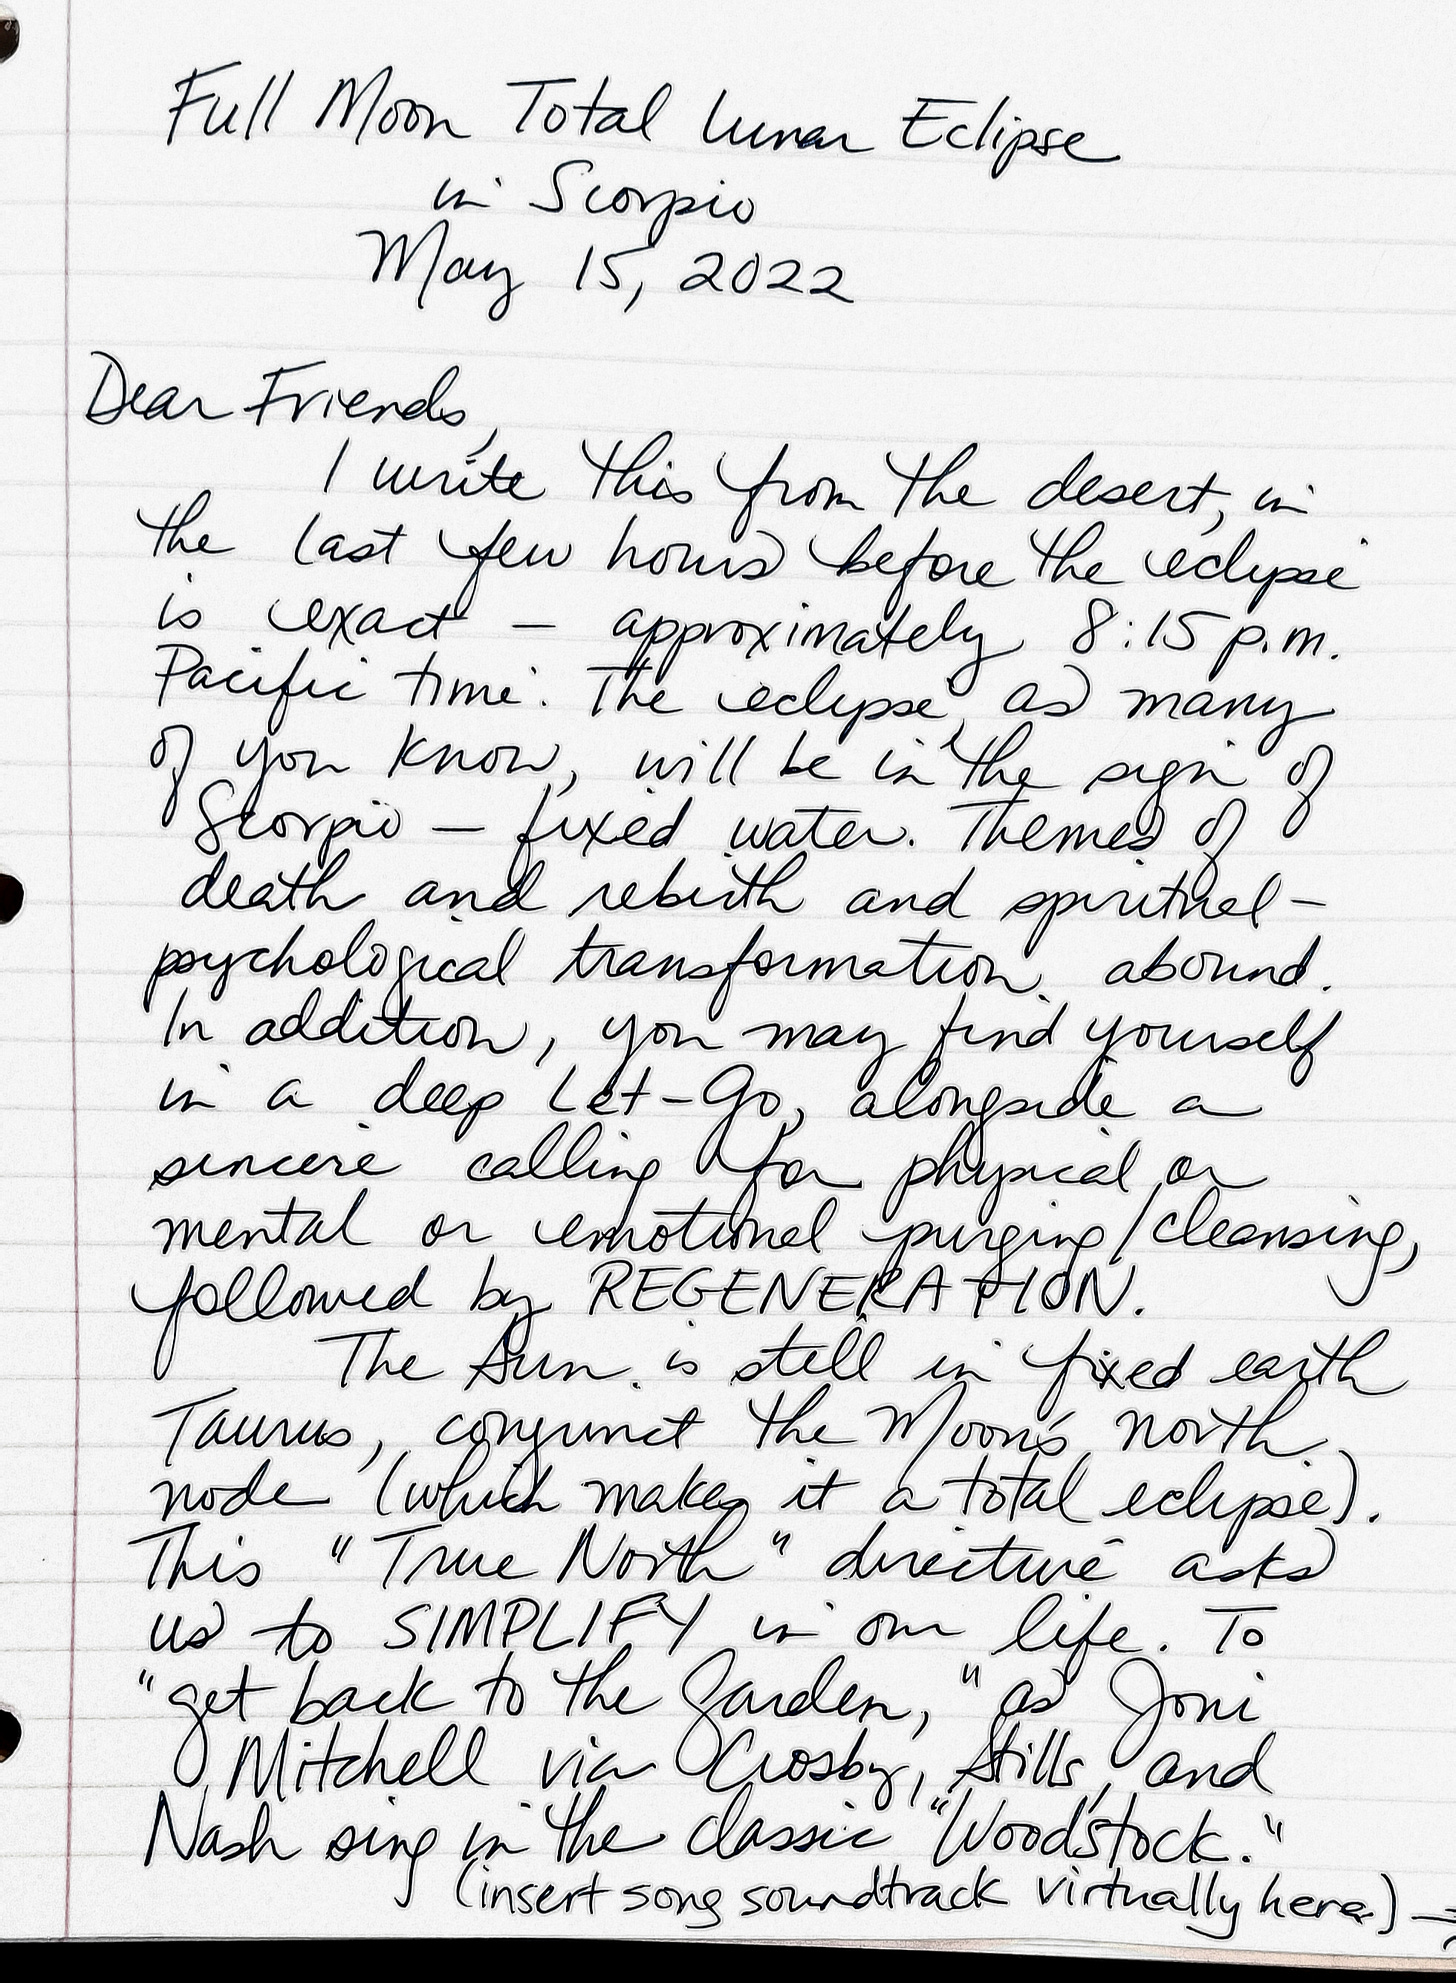 Full Moon Total Lunar Eclipse
in Scorpio
May 15, 2022
Dear Friends,
I write this from the desert, in
the last few hours before the eclipse
is exact — approximately 8:15 p.m.
Pacific time. The eclipse, as many
of you know, will be in the sign of
Scorpio — fixed water. Themes of
death and rebirth and spiritual-
psychological transformation abound.
In addition, you may find yourself
in a deep Let-Go, alongside a
sincere calling for physical or
mental or emotional purging/cleansing,
followed by REGENERATION.
The Sun is still in fixed earth
Taurus, conjunct the Moon's north
node (which makes it a total eclipse).
This "True North" directive asks
us to SIMPLIFY in our life. To
"get back to the Garden," as Joni
Mitchell via Crosby, Stills, and
Nash sing in the classic "Woodstock."
(insert song soundtrack virtually here.) →